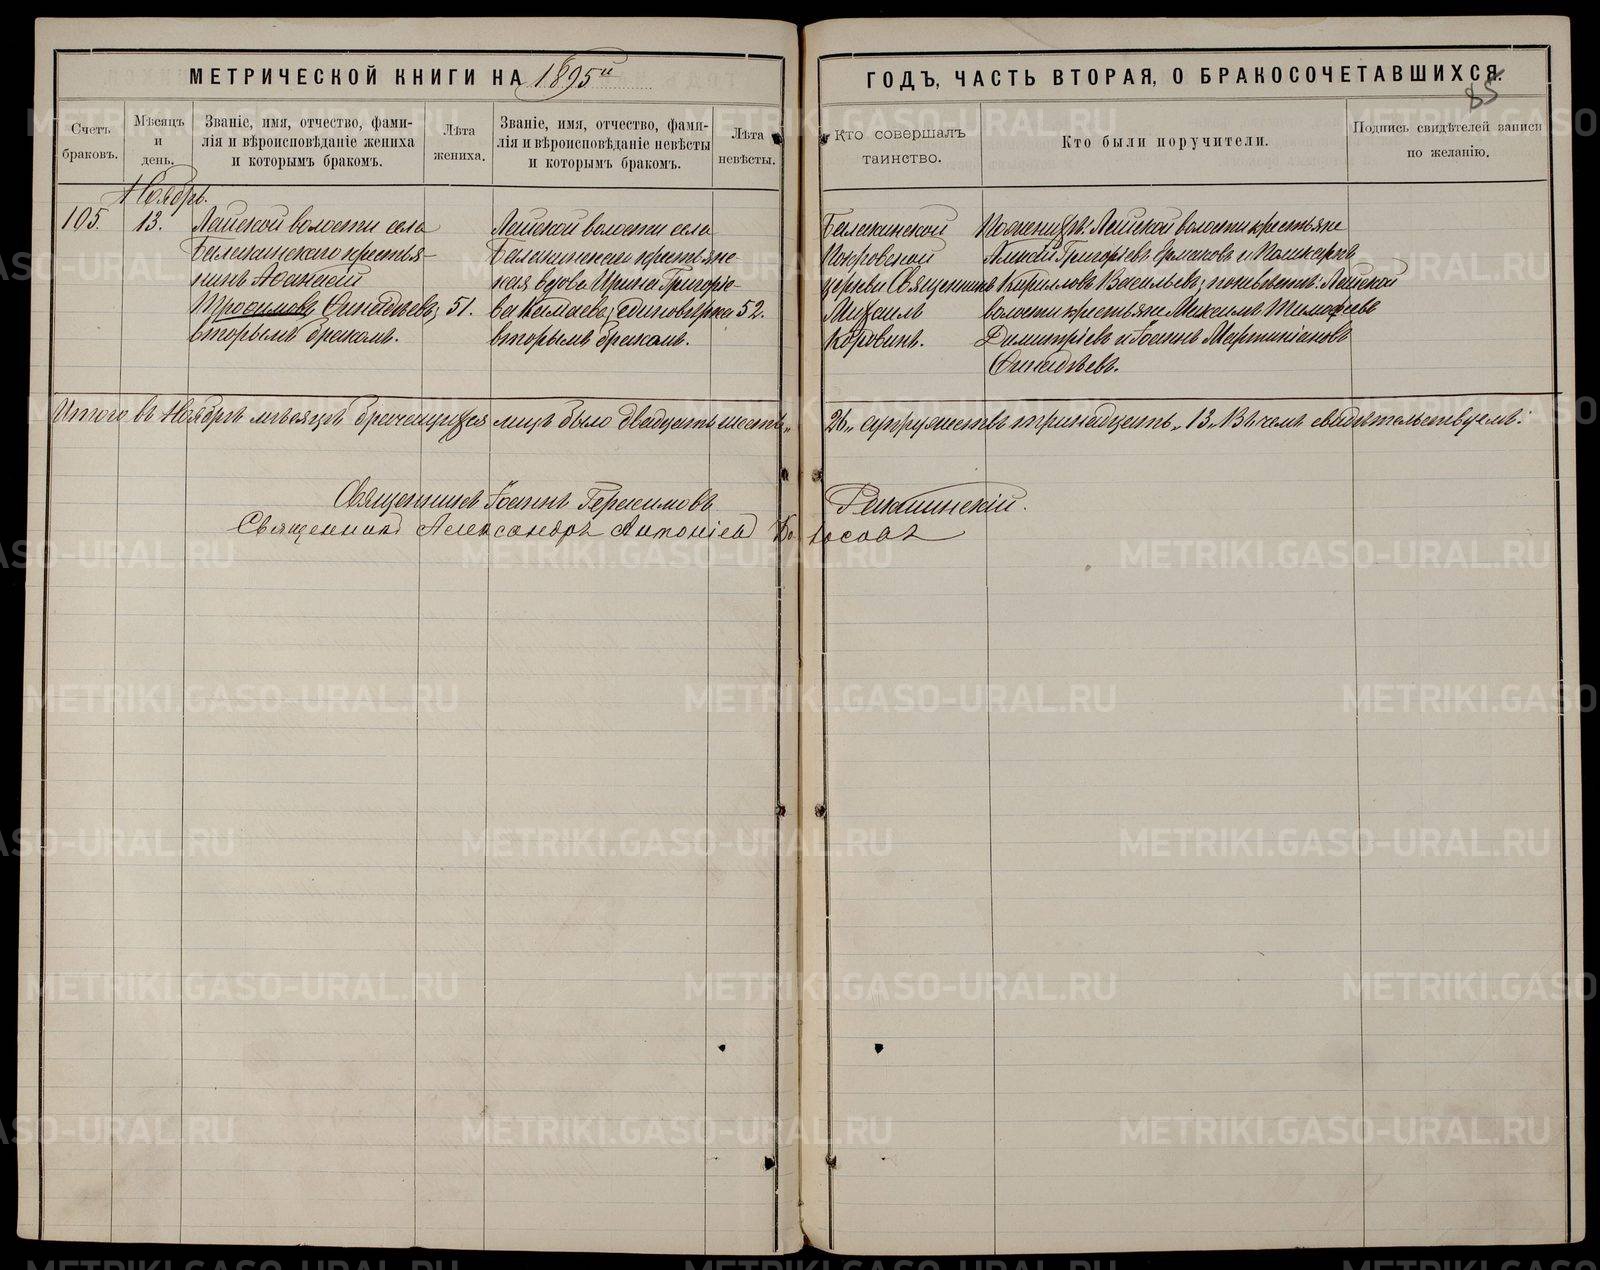 МЕТРИЧЕСКОЙ КНИГИ НА 1895й
ГОДЪ, ЧАСТЬ ВТОРАЯ, О БРАКОСОЧЕТАВШИХСЯ.
85
Счетъ браковъ.
Мѣсяцъ и день.
Званіе, имя, отчество, фами-
лія и вѣроисповѣданіе жениха
и которымъ бракомъ.
Лѣта жениха.
Званіе, имя, отчество, фами-
лія и вѣроисповѣданіе невѣсты
и которымъ бракомъ.
Лѣта невѣсты.
Кто совершалъ
таинство.
Кто были поручители.
Подпись свидѣтелей записи
по желанію.
Ноябрь.
105.
13.
Лайской волости села
Балакинскаго крестья-
нинъ Аѳанасій
Трофимовъ
вторымъ бракомъ.
51.
Лайской волости села
Балакинскаго крестьянс
кая вдова Ирина Григорье-
ва единовѣрка
вторымъ бракомъ.
52.
Балакинской
Покровской
церкви Священникъ
Михаилъ
Коровинъ.
По женихѣ: Лайской волости крестьяне
Григорьевъ Ермаковъ и
Кирилловъ Васильевъ; по невѣстѣ: Лайской
волости крестьяне Михаилъ Тимофеевъ
Димитріевъ и Іоаннъ Мартиніановъ
Итого въ Ноябрѣ мѣсяцѣ брачащихся лицъ было двадцать шесть „26„ супружествъ тринадцать „13„ Въ чемъ свидѣтельствуемъ:
Священникъ Іоаннъ Герасимовъ
Священникъ Александръ Антоніевъ
METRIKI.GASO-URAL.RU